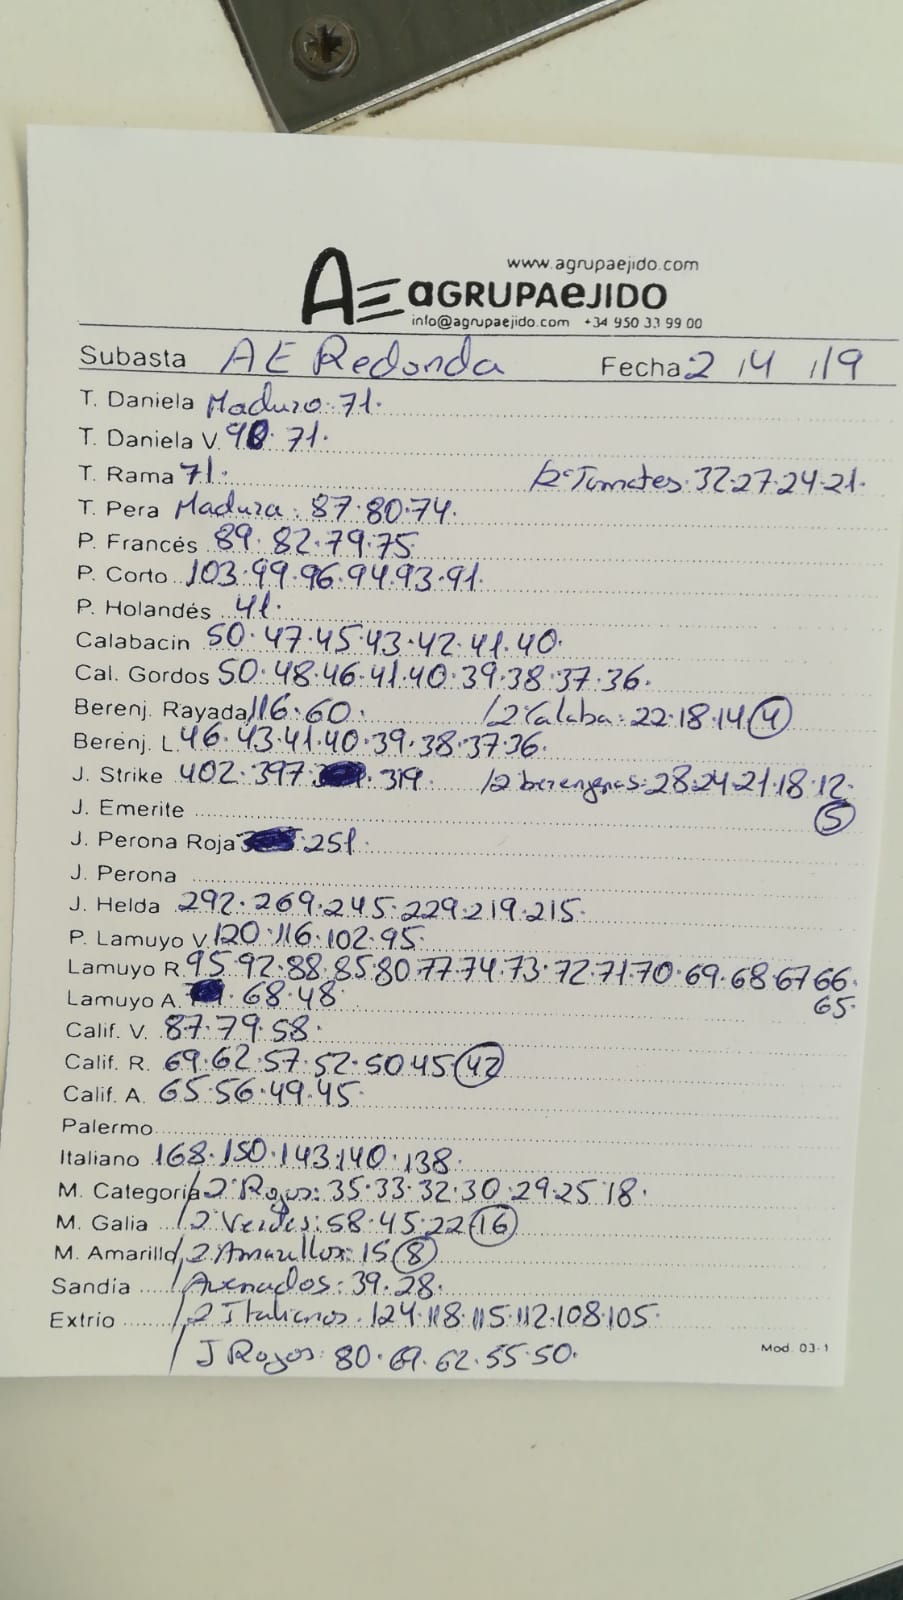 www.agrupaejido.com
AE aGRUPAeJIDO
info@agrupaejido.com +34 950 33 99 00
Subasta AE Redonda Fecha 2 / 4 / 19
T. Daniela Maduro. 71.
T. Daniela V. 71.
T. Rama 71. /2ª Tomates. 32.27.24.21.
T. Pera Madura. 87.80.74.
P. Francés 89. 82.79.75
P. Corto 103.99.96.94.93.91.
P. Holandés 41.
Calabacin 50. 47.45.43.42.41.40.
Cal. Gordos 50.48.46.41.40.39.38.37.36.
Berenj. Rayada 116.60. /2 Calaba: 22.18.14 4
Berenj. L 46.43.41.40.39.38.37.36.
J. Strike 402.397. 319. /2 berenjenas: 28.24.21.18.12.
5
J. Emerite
J. Perona Roja 251.
J. Perona
J. Helda 292.269.245.229.219.215.
P. Lamuyo V. 120.116.102.95.
Lamuyo R. 95.92.88.85.80 77.74.73.72.71.70.69.68.67 66.
65.
Lamuyo A. 68.48.
Calif. V. 87.79.58.
Calif. R. 69.62.57.52.50 45 42
Calif. A. 65.56.49.45.
Palermo
Italiano 168.150.143.140.138.
M. Categoría /2ª Rojos: 35.33.32.30.29.25 18.
M. Galia /2 Verdes: 58.45.22 16
M. Amarillo /2 Amarillos: 15 8
Sandía /Avenados: 39.28.
Extrio /2 Italianos. 124.118.115.112.108.105.
/ J Rojos: 80.69.62.55.50.
Mod. 03-1